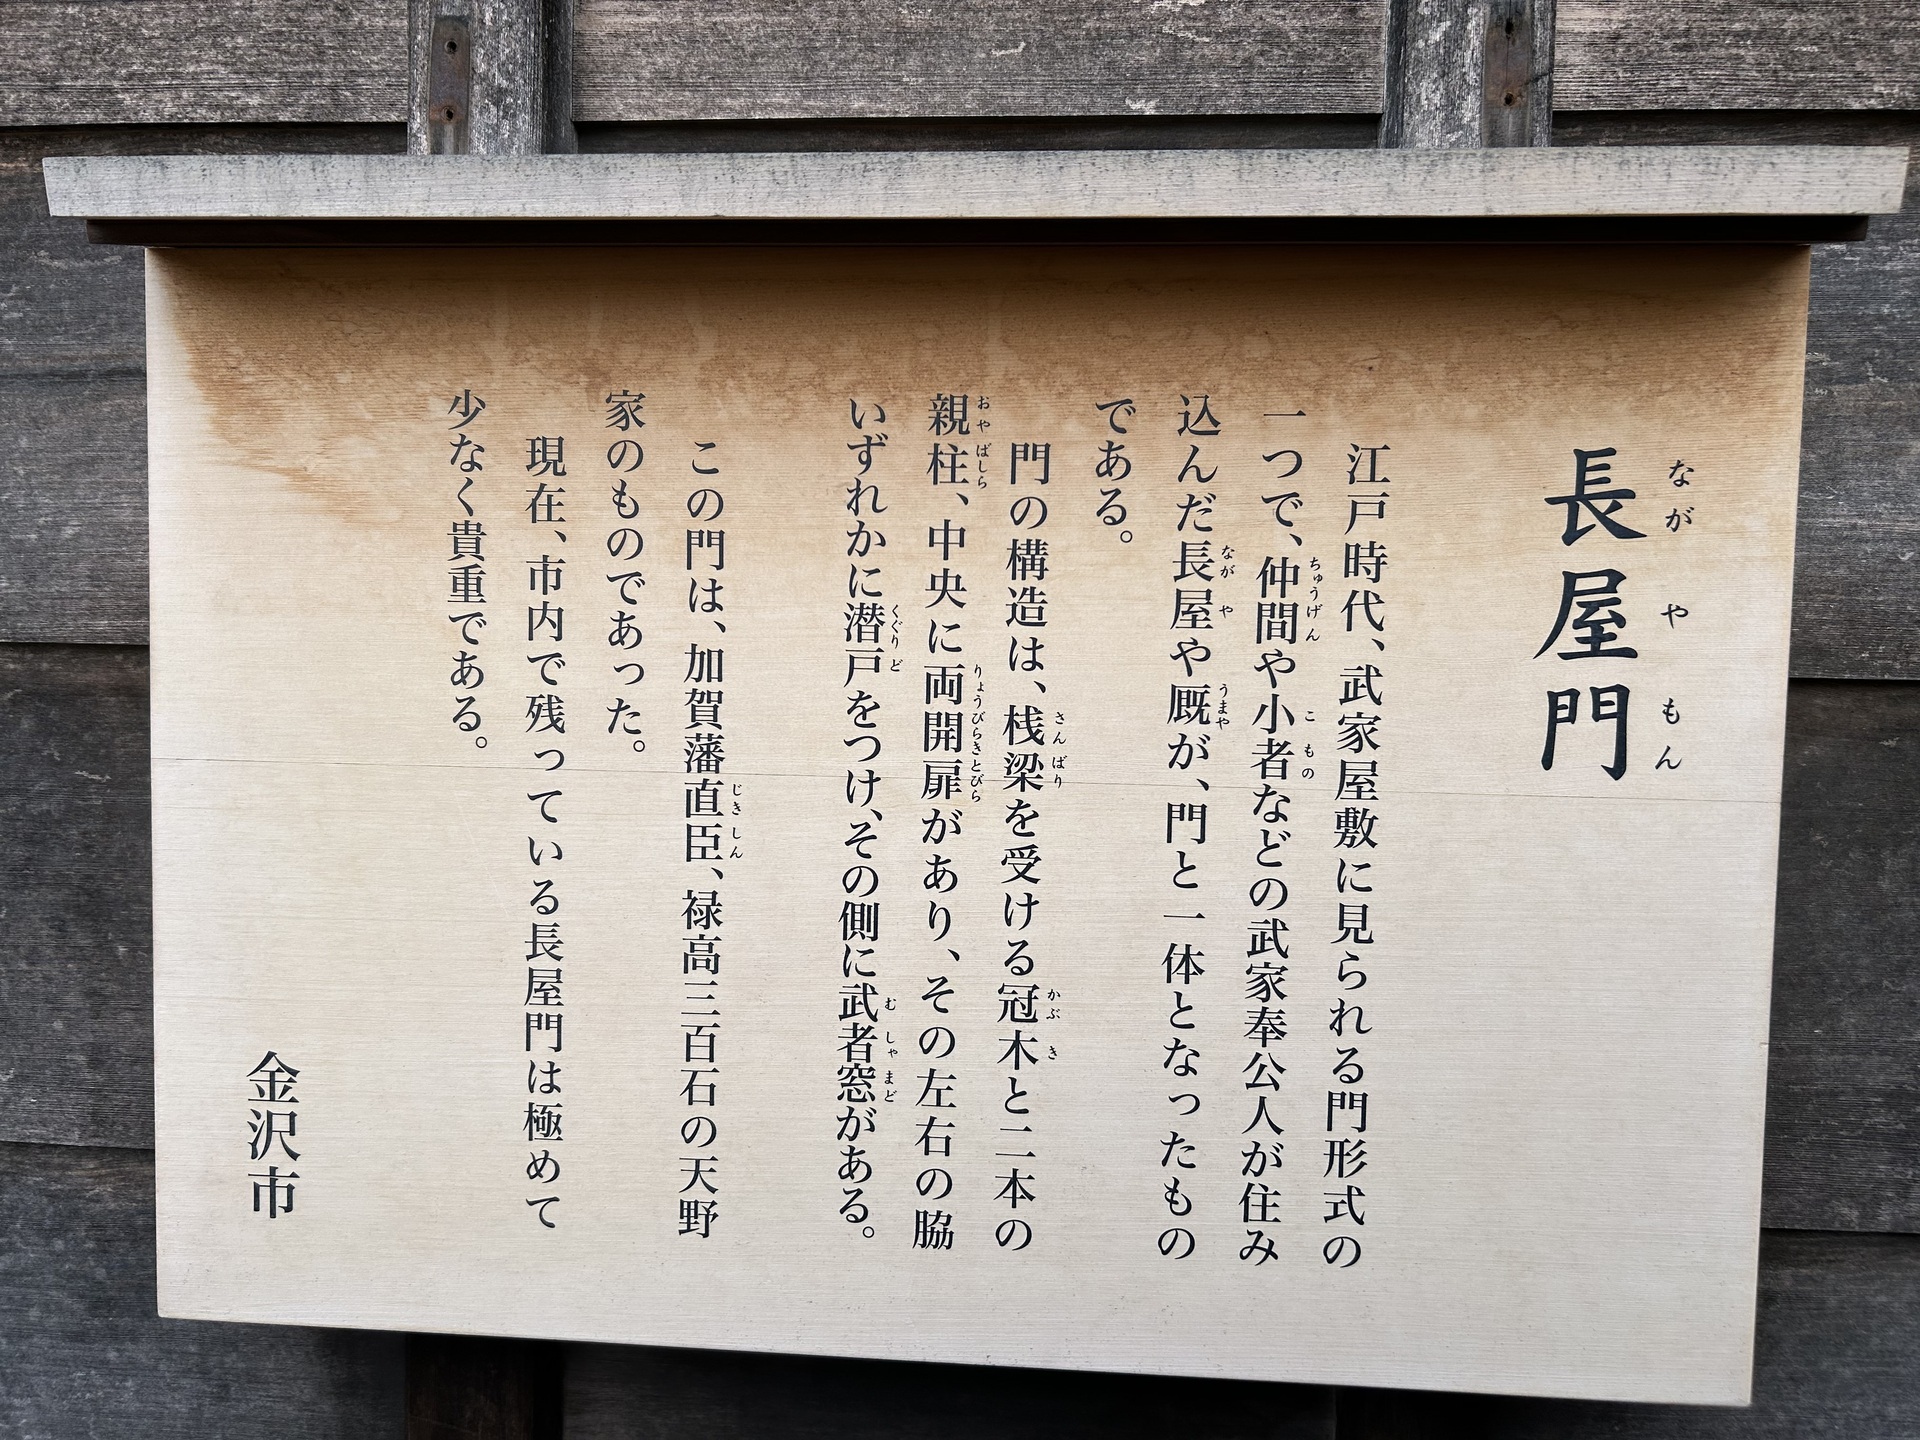 長屋門
ながやもん
江戸時代、武家屋敷に見られる門形式の
一つで、仲間や小者などの武家奉公人が住み
ちゅうげん こもの
込んだ長屋や厩が、門と一体となったもの
ながや うまや
である。
門の構造は、桟梁を受ける冠木と二本の
さんばり かぶき
親柱、中央に両開扉があり、その左右の脇
おやばしら りょうびらきとびら
いずれかに潜戸をつけ、その側に武者窓がある。
くぐりど むしゃまど
この門は、加賀藩直臣、禄高三百石の天野
じきしん
家のものであった。
現在、市内で残っている長屋門は極めて
少なく貴重である。
金沢市